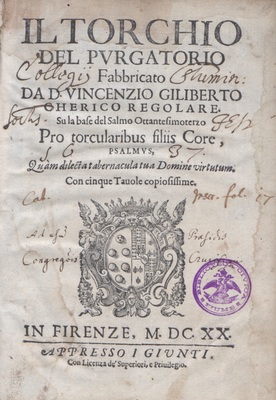 IL TORCHIO
DEL PVRGATORIO
Collegij Fabbricato
DA D. VINCENZIO GILIBERTO
CHERICO REGOLARE.
Su la base del Salmo Ottantesimoterzo
Pro torcularibus filiis Core,
PSALMVS,
Quàm dilecta tabernacula tua Domine virtutum.
Con cinque Tauole copiosissime.
IN FIRENZE, M. DC XX.
APPRESSO I GIVNTI.
Con Licenza de' Superiori, e Priuilegio.